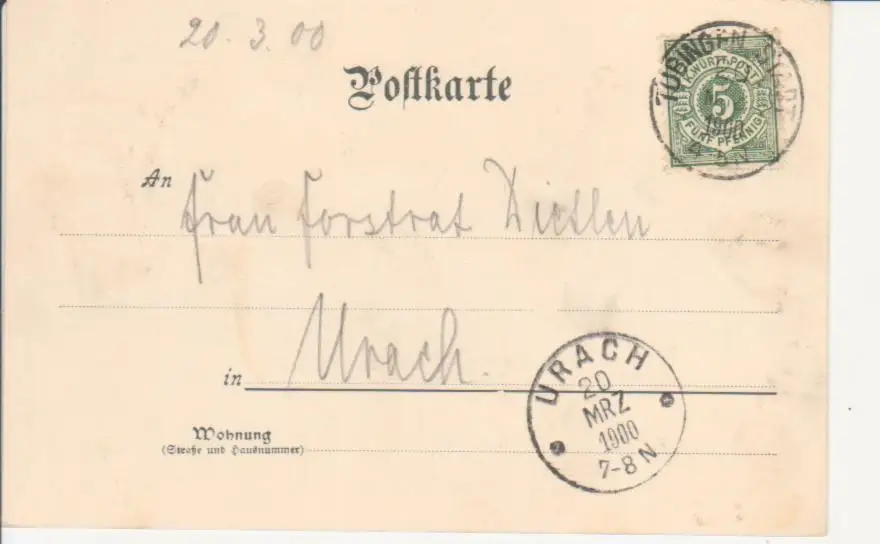 20. 3. 00
Postkarte
TÜBINGEN STADT
K. WÜRTT. POST
5
FÜNF PFENNIG
1900
An Frau Forstrat Dietlen
in Urach.
URACH
20
MRZ
1900
7-8 N
Wohnung
(Straße und Hausnummer)